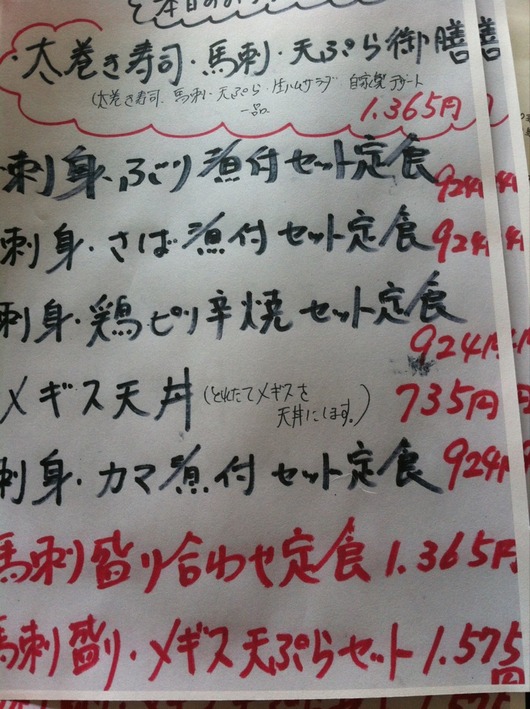 太巻き寿司・馬刺・天ぷら御膳
(太巻き寿司、馬刺、天ぷら、生ハムサラダ 自家製デザート
一品
1.365円
刺身・ぶり煮付セット定食 924円
刺身・さば煮付セット定食 924円
刺身・鶏ピリ辛焼セット定食
924円
メギス天丼(とれたてメギスを
天丼にします。) 735円
刺身・カマ煮付セット定食 924円
馬刺盛り合わせ定食 1.365円
馬刺盛り・メギス天ぷらセット 1.575
円